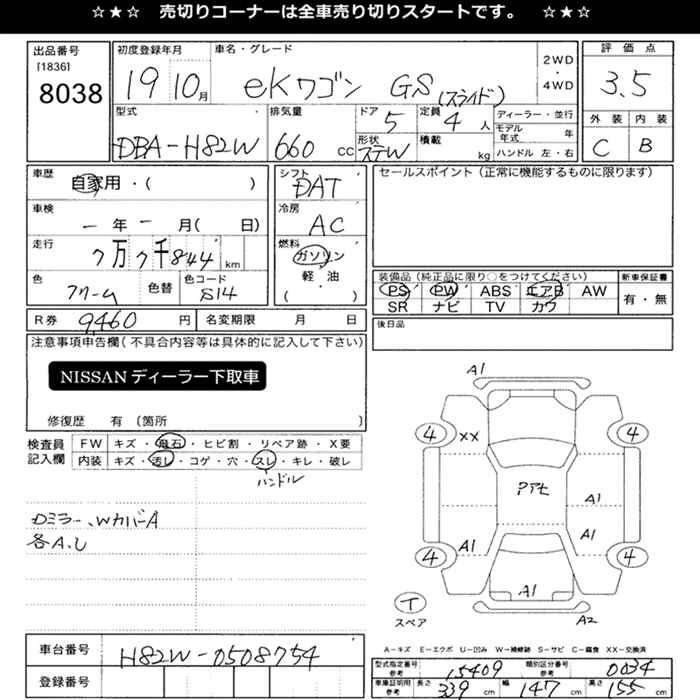 ☆★☆ 売切りコーナーは全車売り切りスタートです。 ☆★☆
出品番号
[1836]
8038
初度登録年月
19 10月
車名・グレード
eKワゴン GS (スライド)
2WD
・
4WD
評価点
3.5
外装 内装
C B
型式
DBA-H82W
排気量
660 cc
ドア 5
形状 STW
定員 4 人
積載 kg
ディーラー・並行
モデル年式 年
ハンドル 左・右
車歴
自家用・( )
車検
- 年 - 月( 日)
走行
7万7千844 km
色
クリーム
色替
色コード
S14
シフト
DAT
冷房
AC
燃料
ガソリン
軽・油
( )
セールスポイント(正常に機能するものに限ります)
装備品(純正品に限り○をつけてください)
PS PW ABS エアB AW
SR ナビ TV カワ
新車保証書
有・無
R券 9,460 円
名変期限 月 日
後日品
注意事項申告欄(不具合内容等は具体的に記入して下さい)
NISSANディーラー下取車
修復歴 有 (箇所 )
検査員記入欄
FW キズ・飛石・ヒビ割・リペア跡・X要
内装 キズ・汚レ・コゲ・穴・スレ・キレ・破レ
ハンドル
Dミラー、WカバーA
各A.U
A1
4 XX 4
A1
A1 A1
4 4
A1
T
スペア
A2
A-キズ E-エクボ U-凹み W-補修跡 S-サビ C-腐食 XX-交換済
車台番号
H82W-0508754
登録番号
型式指定番号 参考 15409
類別区分番号 参考 0034
車庫証明用 参考 長さ 339 cm 幅 147 cm 高さ 155 cm